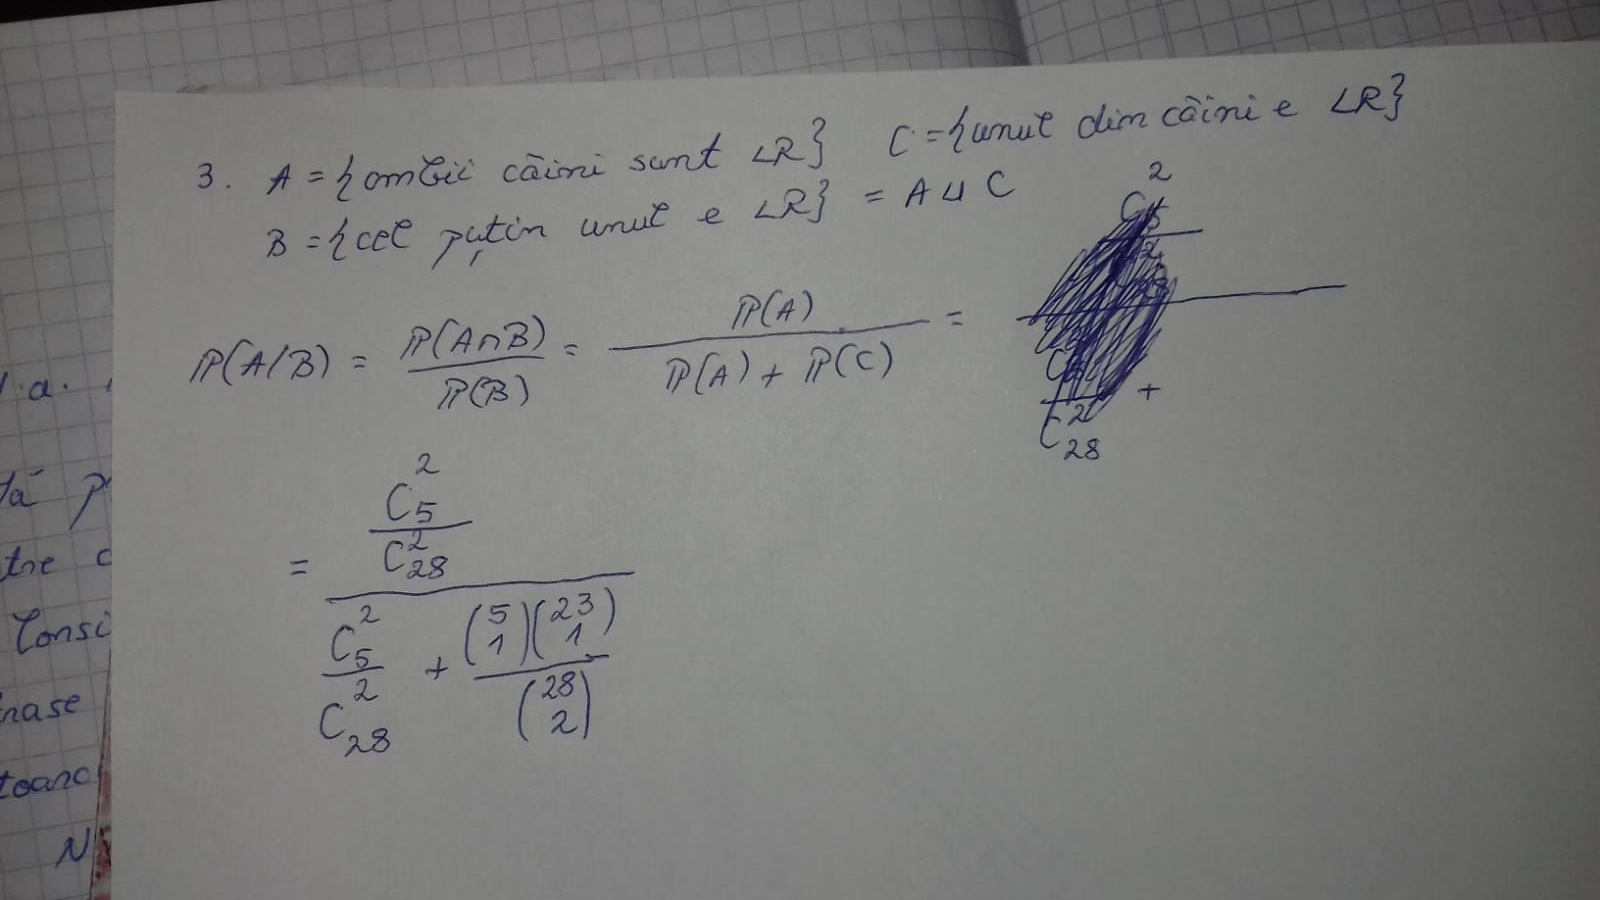 3. A = {ambii câini sunt LR} C = {unul din câini e LR}
B = {cel puțin unul e LR} = A ⊔ C
P(A/B) = P(A∩B)/P(B) = P(A)/(P(A) + P(C)) =
C²₂₈ +
= (C₅²/C²₂₈)/(C₅²/C²₂₈ + (5 1)(23 1)/(28 2))
l.a.
tă p
tre c
Consi
nase
toarc
N